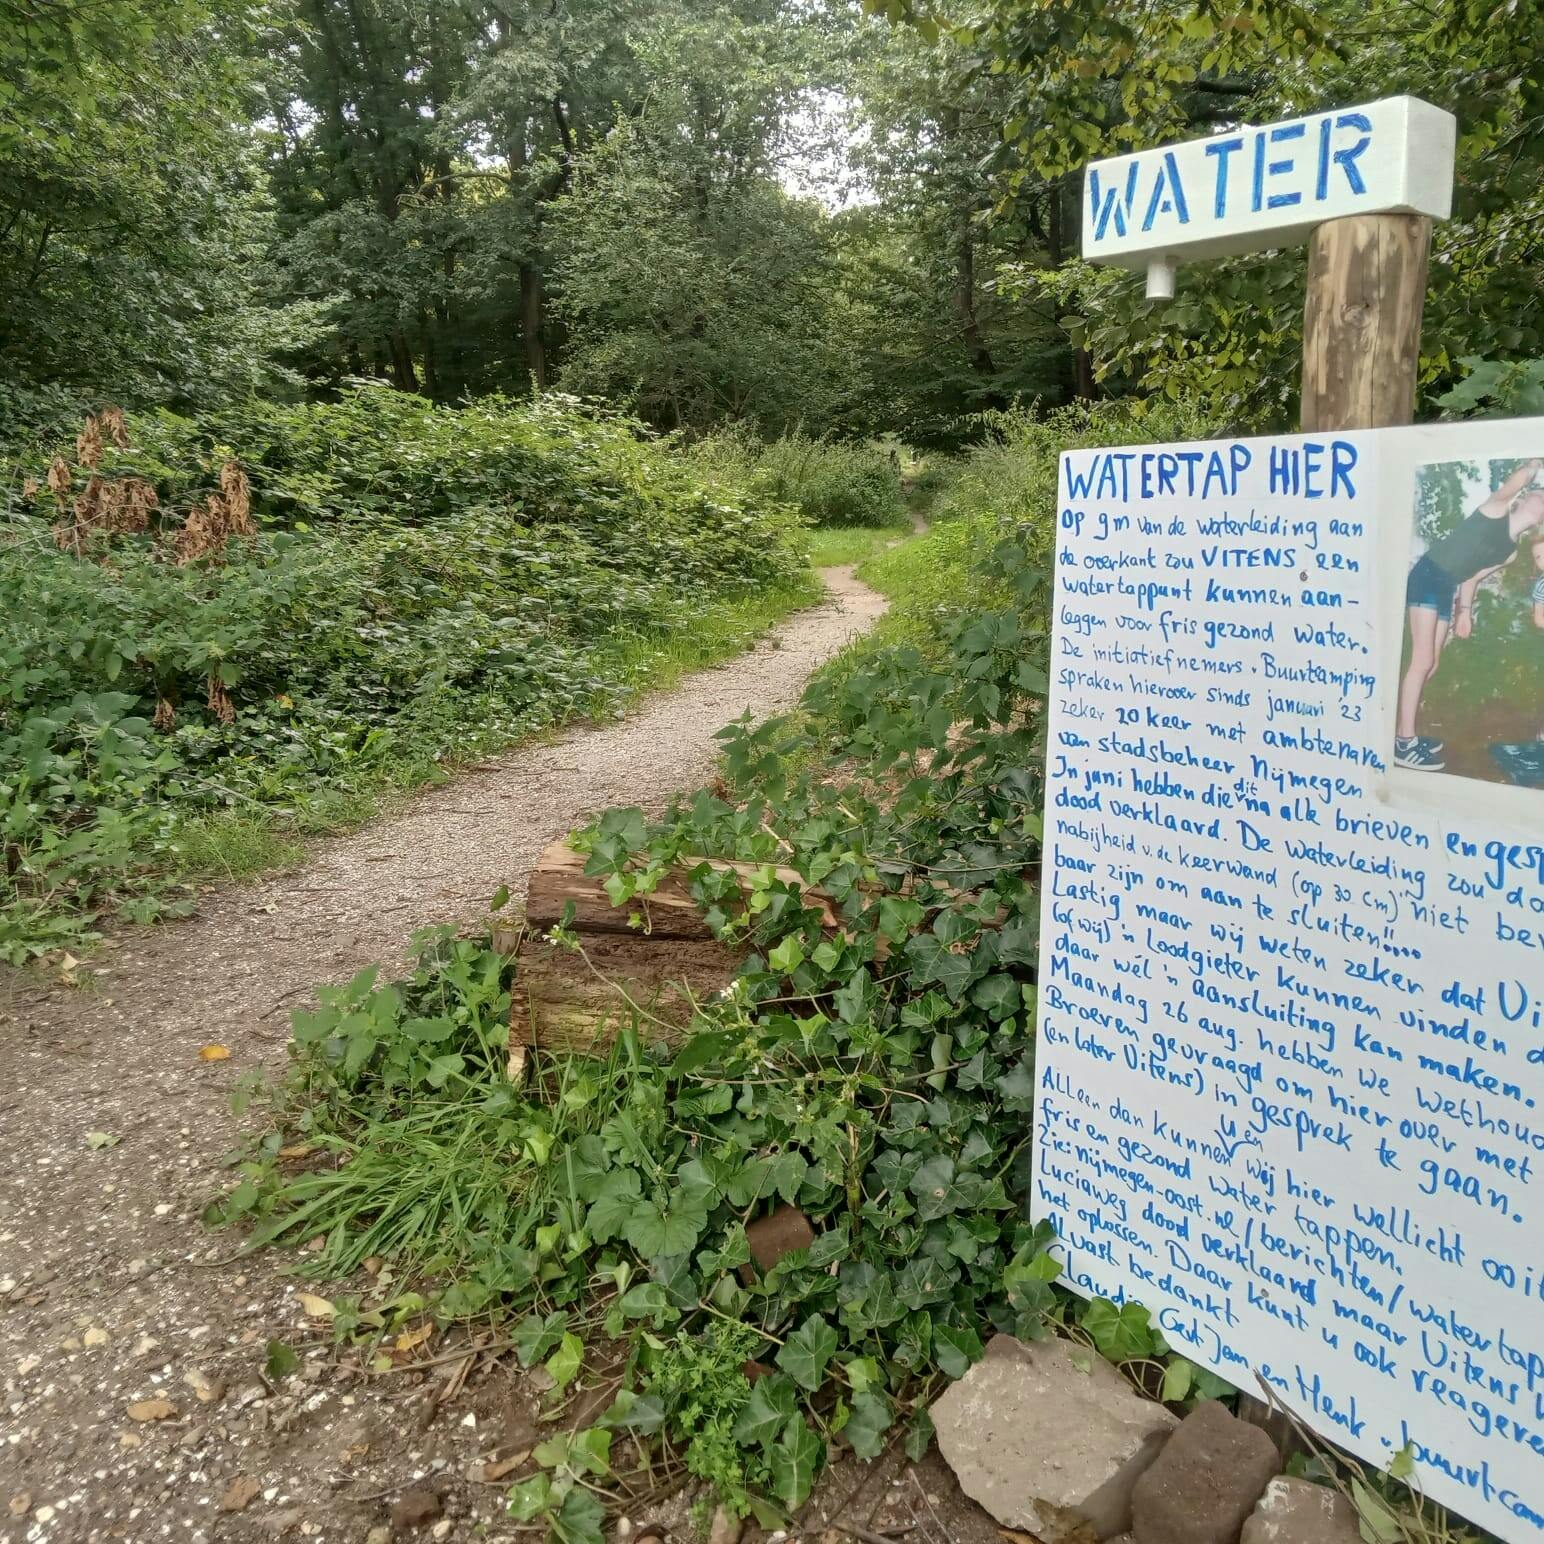 WATER
WATERTAP HIER
Op 9m van de waterleiding aan
de overkant zou VITENS een
watertappunt kunnen aan-
leggen voor fris gezond water.
De initiatiefnemers v. Buurtcamping
spraken hierover sinds januari '23
zeker 20 keer met ambtenaren
van stadsbeheer Nijmegen
In juni hebben die dit na alle brieven en gesp
dood verklaard. De waterleiding zou do
nabijheid v. de keerwand (op 30 cm) "niet ber
baar zijn om aan te sluiten"!!...
Lastig maar wij weten zeker dat Vi
(of wij) 'n loodgieter kunnen vinden d
daar wél 'n aansluiting kan maken.
Maandag 26 aug. hebben we wethoud
Broeren gevraagd om hier over met
(en later Vitens) in gesprek te gaan.
Alleen dan kunnen u en wij hier wellicht ooit
fris en gezond water tappen.
Zie: nijmegen-oost.nl/berichten/watertap
Luciaweg dood verklaard maar Vitens
het oplossen. Daar kunt u ook reagere
Alvast bedankt
Claudia Gert Jan en Henk v. buurtcam